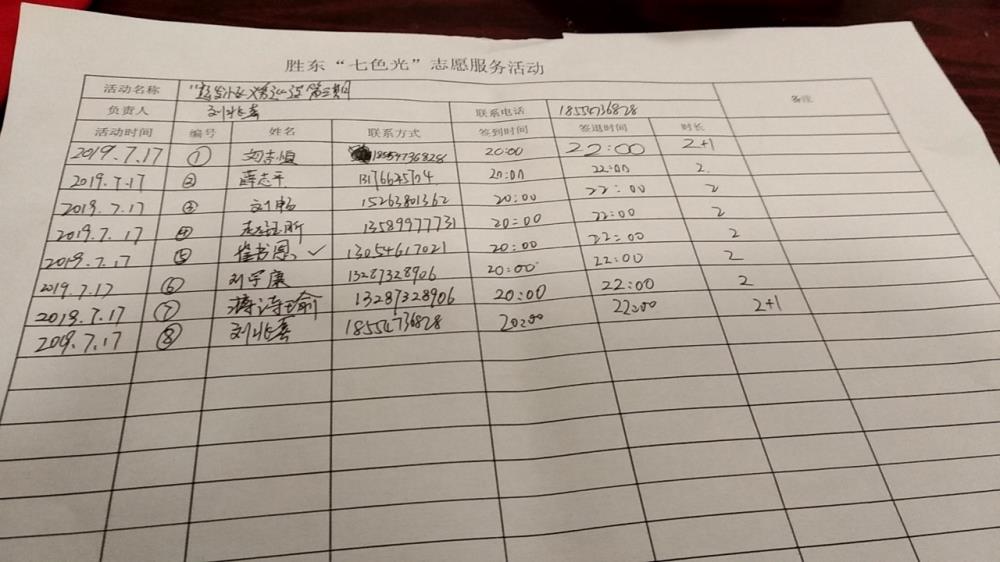 胜东“七色光”志愿服务活动
活动名称 第三期 备注
负责人 刘兆春 联系电话 18554736828
活动时间 编号 姓名 联系方式 签到时间 签退时间 时长
2019.7.17 ① 刘吉恒 18554736828 20:00 22:00 2+1
2019.7.17 ② 薛志平 20:00 22:00 2
2019.7.17 ③ 刘畅 15263801362 20:00 22:00 2
2019.7.17 ④ 13589977731 20:00 22:00 2
2019.7.17 ⑤ 崔书恩 ✓ 13054617021 20:00 22:00 2
2019.7.17 ⑥ 刘宇康 13287328906 20:00 22:00 2
2019.7.17 ⑦ 蒋诗瑜 13287328906 20:00 22:00 2
2019.7.17 ⑧ 刘兆春 18554736828 20:00 22:00 2+1